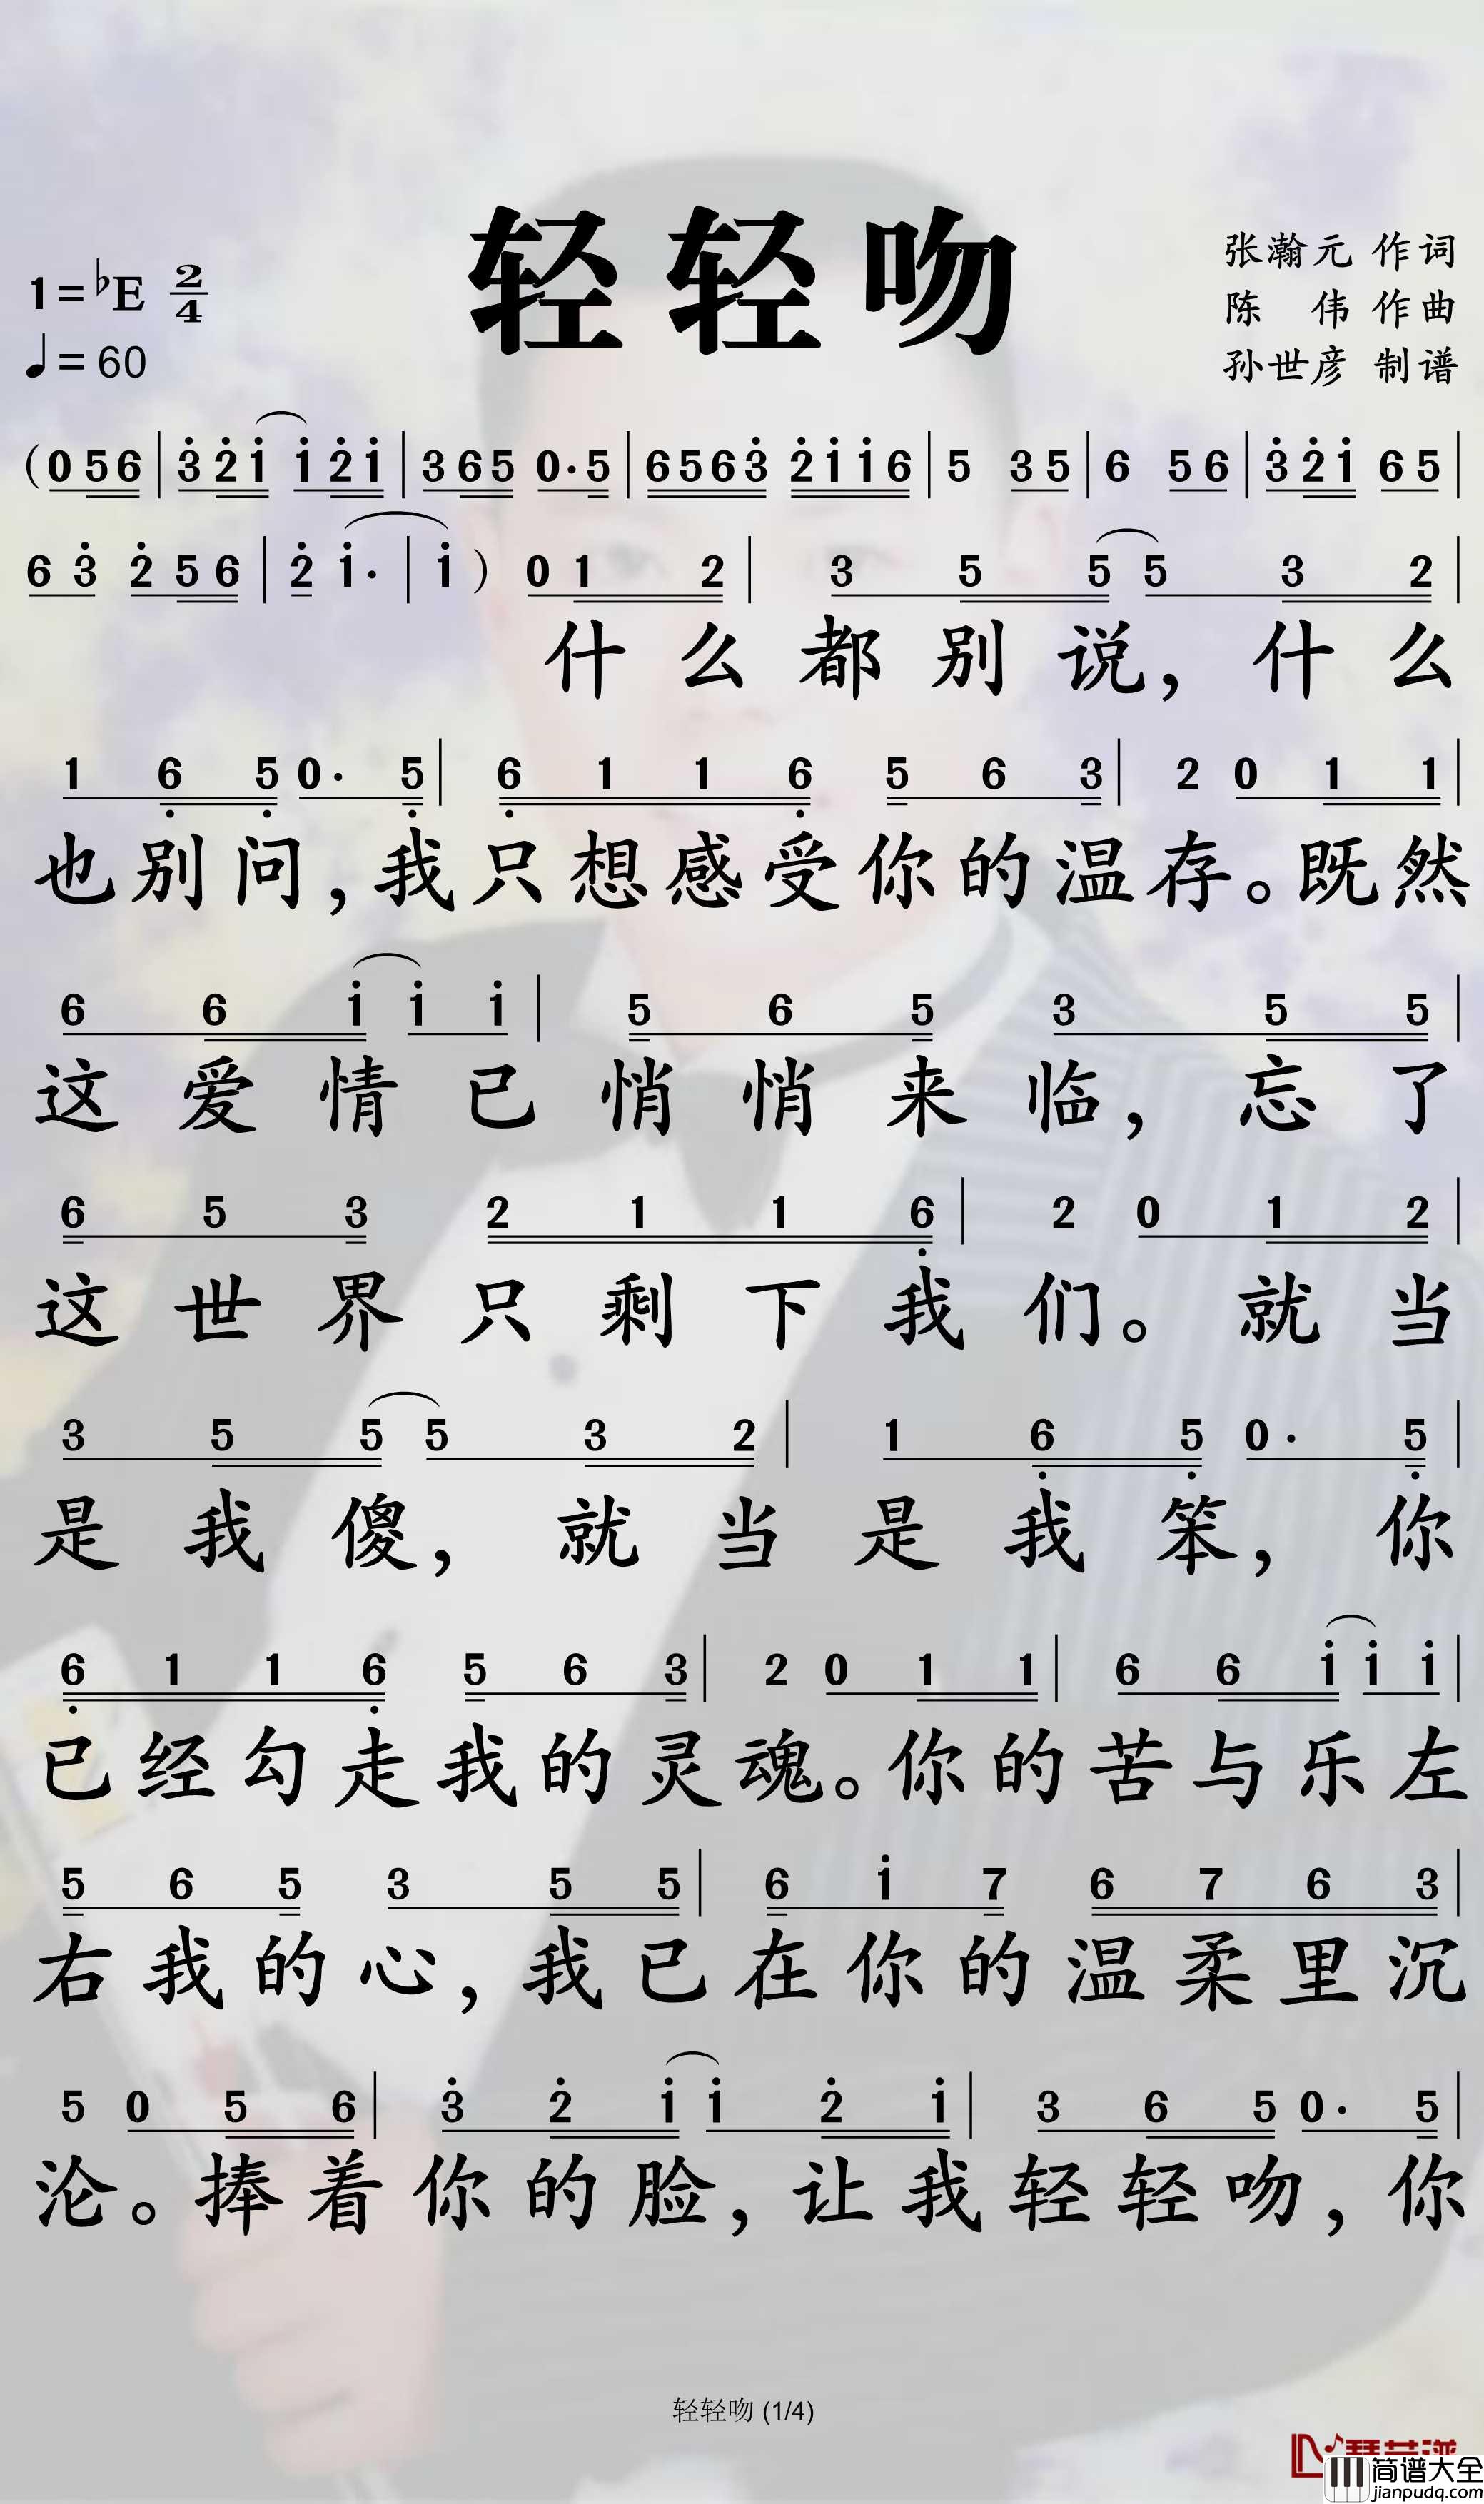 轻轻吻
1=♭E 2/4
♩=60
张瀚元 作词
陈 伟 作曲
孙世彦 制谱
(0 5 6 | 3̇ 2̇ 1̇ 1̇ 2̇ 1̇ | 3 6 5 0·5 | 6 5 6 3̇ 2̇ 1̇ 1̇ 6 | 5 3 5 | 6 5 6 | 3̇ 2̇ 1̇ 6 5 |
6 3̇ 2̇ 5 6 | 2̇ 1̇· | 1̇ ) 0 1 2 | 3 5 5 5 3 2 |
什么都别说，什么
1 6̣ 5̣ 0· 5̣ | 6̣ 1 1 6̣ 5 6 3 | 2 0 1 1 |
也别问，我只想感受你的温存。既然
6 6 1̇ 1̇ 1̇ | 5 6 5 3 5 5 |
这爱情已悄悄来临，忘了
6 5 3 2 1 1 6̣ | 2 0 1 2 |
这世界只剩下我们。就当
3 5 5 5 3 2 | 1 6̣ 5̣ 0· 5̣ |
是我傻，就当是我笨，你
6̣ 1 1 6̣ 5 6 3 | 2 0 1 1 | 6 6 1̇ 1̇ 1̇ |
已经勾走我的灵魂。你的苦与乐左
5 6 5 3 5 5 | 6 1̇ 7 6 7 6 3 |
右我的心，我已在你的温柔里沉
5 0 5 6 | 3̇ 2̇ 1̇ 1̇ 2̇ 1̇ | 3 6 5 0· 5 |
沦。捧着你的脸，让我轻轻吻，你
轻轻吻 (1/4)
简谱大全
jianpudq.com